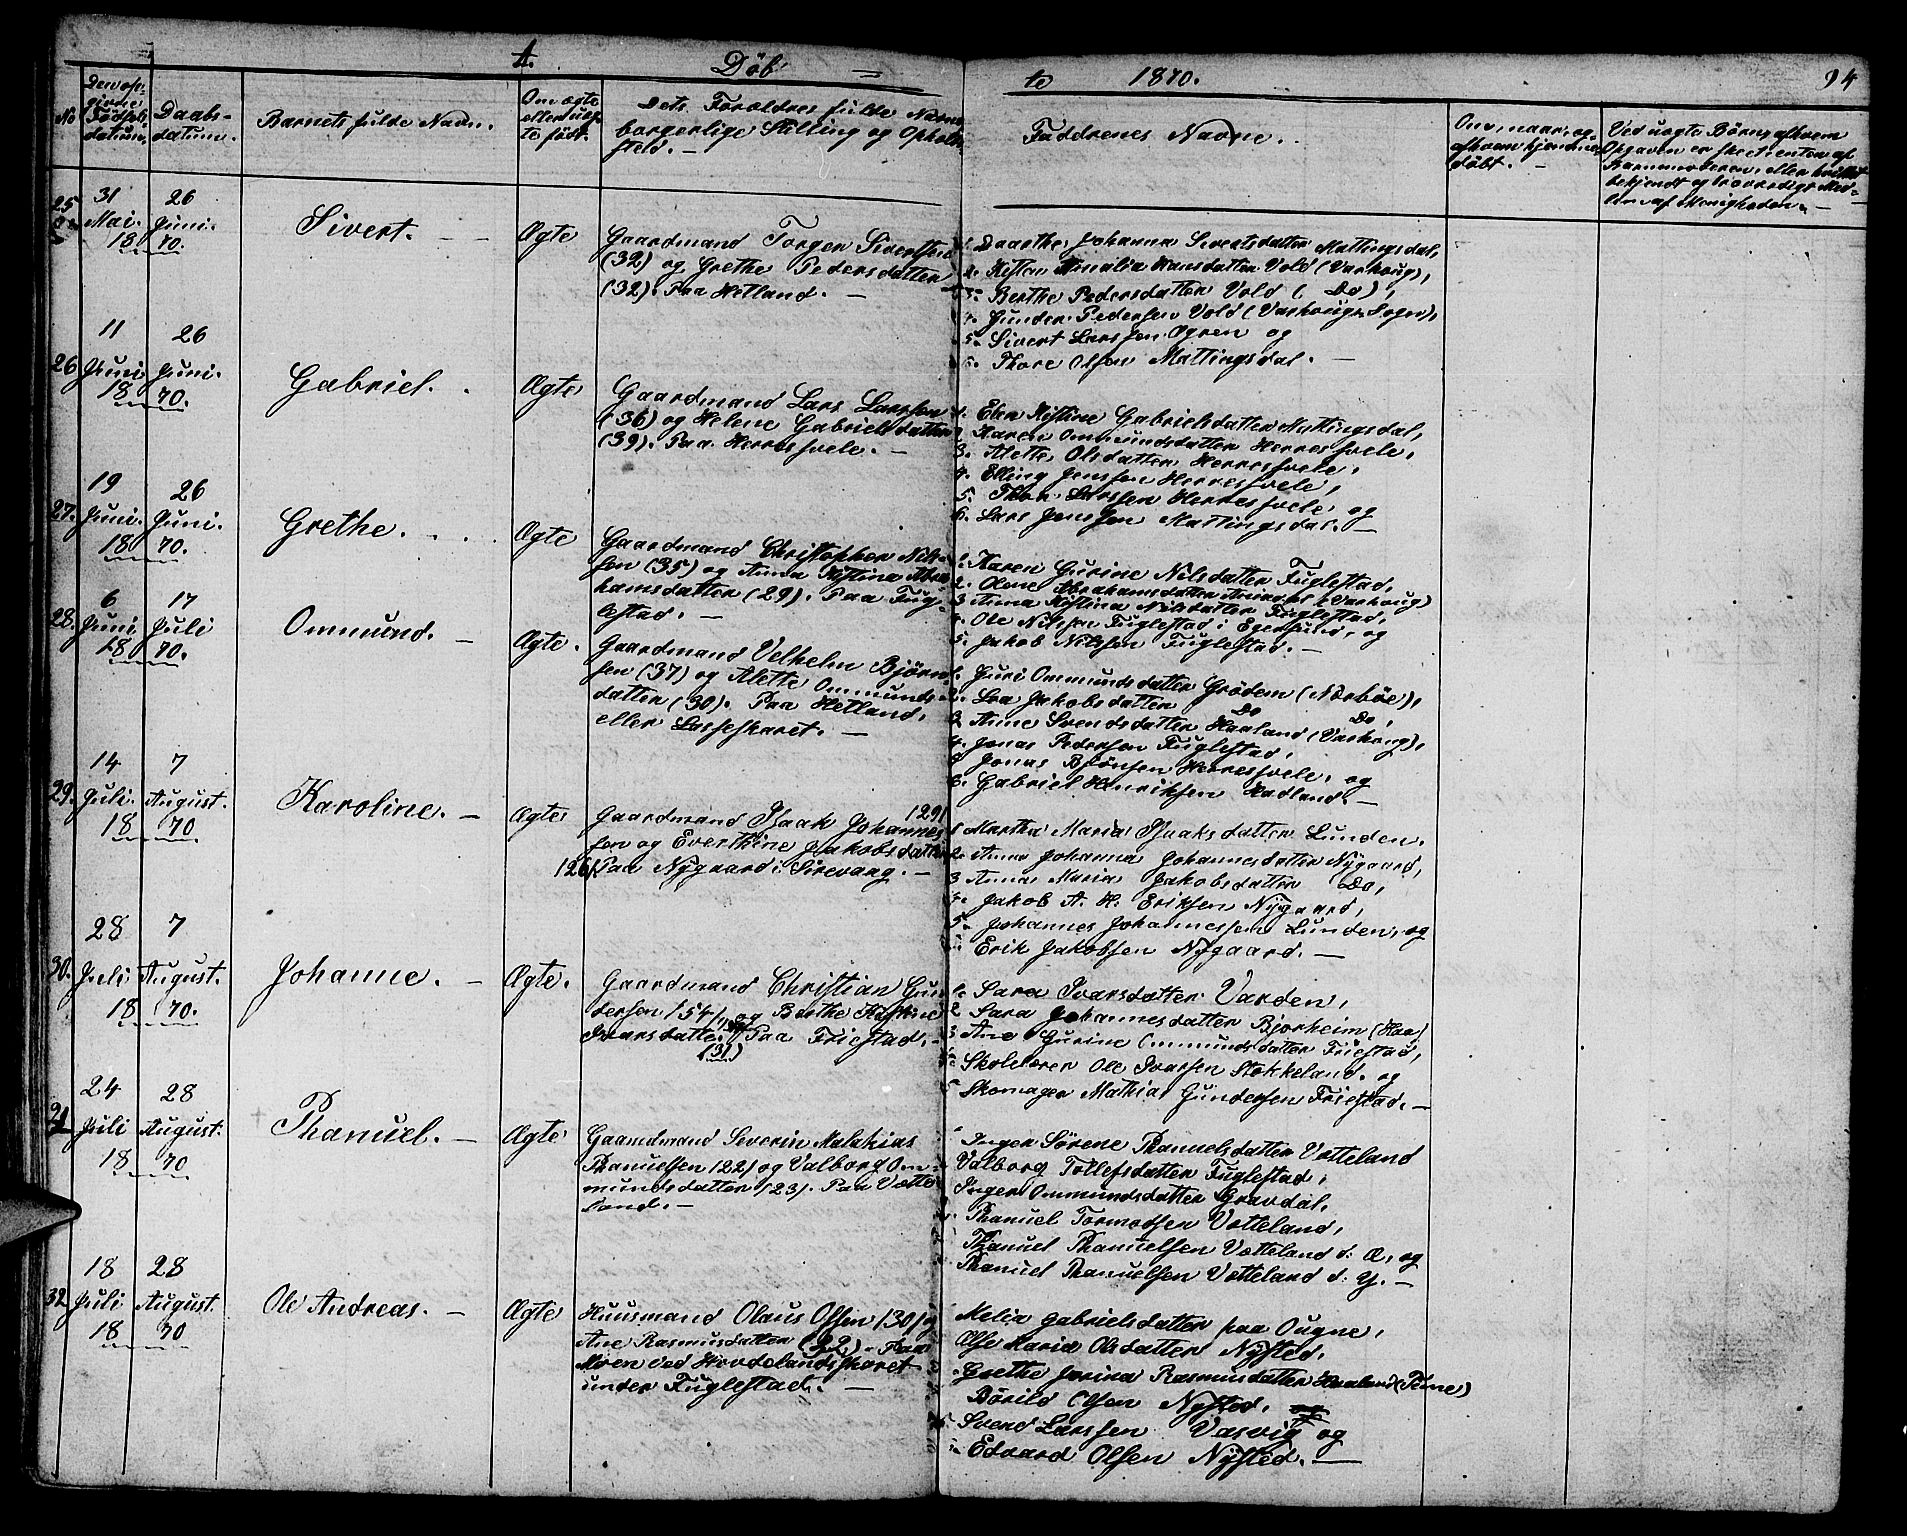 A.
Döb- te 1870.
94
No
Den opgivne Födselsdatum.
Daabsdatum.
Barnets fulde Navn.
Om ægte eller uægte födt.
Dets Forældres fulde Navne borgerlige Stilling og Opholdssted. -
Faddrenes Navne.
Om, naar, og af hvem hjemmedöbt. -
25
31 Mai. 1870.
26 Juni.
Sivert. -
Ægte
Gaardmand Torgen Sivertsen
(32) og Grethe Pedersdatter
(32). Paa Hetland. -
1. Daarthe Johanna Sivertsdatter Mattingsdal,
2. Kisten Amalia Hansdatter Vold (Varhoug),
3. Berthe Pedersdatter Vold ( Do ),
4. Gunder Pedersen Vold (Varhoug Sogn),
5. Sivert Larssen Ogren og
6. Thore Olsen Mattingsdal. -
26
11 Juni 1870.
26 Juni.
Gabriel.
Ægte
Gaardmand Lars Larssen
(36) og Helene Gabrielsdatter
(39). Paa Herresvele. -
1. Elen Kistine Gabrielsdatter Mattingsdal,
2. Karen Ommundsdatter Herresvele,
3. Alette Olsdatter Herresvele,
4. Elling Jenssen Herresvele,
5. Thor Larssen Herresvele, og
6. Lars Jenssen Mattingsdal. -
27.
19 Juni. 1870.
26 Juni.
Grethe.
Ægte
Gaardmand Christopher Nils-
sen (35) og Anna Kistina Abra-
hamsdatter (29). Paa Fug-
lestad. -
1. Karen Gurine Nilsdatter Fuglestad,
2. Olene Abrahamsdatter (Varhoug)
3 Anna Kistina Nilsdatter Fuglestad,
4. Ole Nilssen Fuglestad i Egersund, og
5. Jakob Nilssen Fuglestad. -
28.
6 Juni 1870.
17 Juli
Ommund. -
Ægte.
Gaardmand Velhelm Björn-
sen (37) og Alette Ommunds-
datter (30). Paa Hetland,
eller Lasseskaret. -
1. Guri Ommundsdatter Grödem (Nærböe),
2. Lea Jakobsdatter Do Do,
3 Anne Svendsdatter Haaland (Varhoug),
4. Jonas Pedersen Fuglestad,
5 Jonas Björnsen Herresvele, og
6. Gabriel Henriksen Hadland. -
29.
14 Juli. 1870
7 August.
Karoline. -
Ægte
Gaardmand Isaak Johannes- (29)
sen og Everthine Jakobsdatter
(26) Paa Nygaard i Sirevaag. -
1 Martha Maria Isaaksdatter Lunden.
2. Anna Johanna Johannesdatter Nygaard,
3 Anna Maria Jakobsdatter Do,
4. Jakob A. H. Eriksen Nygaard,
5. Johannes Johannessen Lunden, og
6. Erik Jakobsen Nygaard. -
30.
28 Juli 1870.
7 August.
Johanne. -
Ægte.
Gaardmand Christian Gun-
dersen (54) og Berthe Kistine
Ivarsdatter Paa Friestad. -
(31)
1. Sara Ivarsdatter Varden,
2 Sara Johannesdatter Bjorheim (Haa)
3 Ane Gurine Ommundsdatter Friestad,
4. Skolelærer Ole Ivarssen Stokkeland. og
5 Skomager Mathias Gundersen Friestad. -
31
24 Juli 1870
28 August.
Thanuel. -
Ægte
Gaardmand Severin Malakias
Thanuelsen (22) og Valborg Om-
mundsdatter (23). Paa Vætte-
land. -
Inger Sörene Thanuelsdatter Vætteland
Valborg Tollefsdatter Fuglestad,
Inger Ommundsdatter Gravdal,
Thanuel Tormodsen Vætteland,
Thanuel Thanuelsen Vætteland d: Æ, og
Thanuel Thanuelsen Vætteland d: Y. -
32
18 Juli 1870
28 August.
Ole Andreas. -
Ægte
Huusmand Olaus Olsen (30) og
Ane Rasmusdatter (22). Paa
Moen ved Hovdelandsskaret
under Fuglestad. -
Melia Gabrielsdatter paa Ougne,
Else Maria Olsdatter Nysted,
Grethe Jorina Rasmusdatter Haaland (Time)
Börild Olsen Nysted,
5 Svend Larssen Vasvig og
6. Edvard Olsen Nysted. -